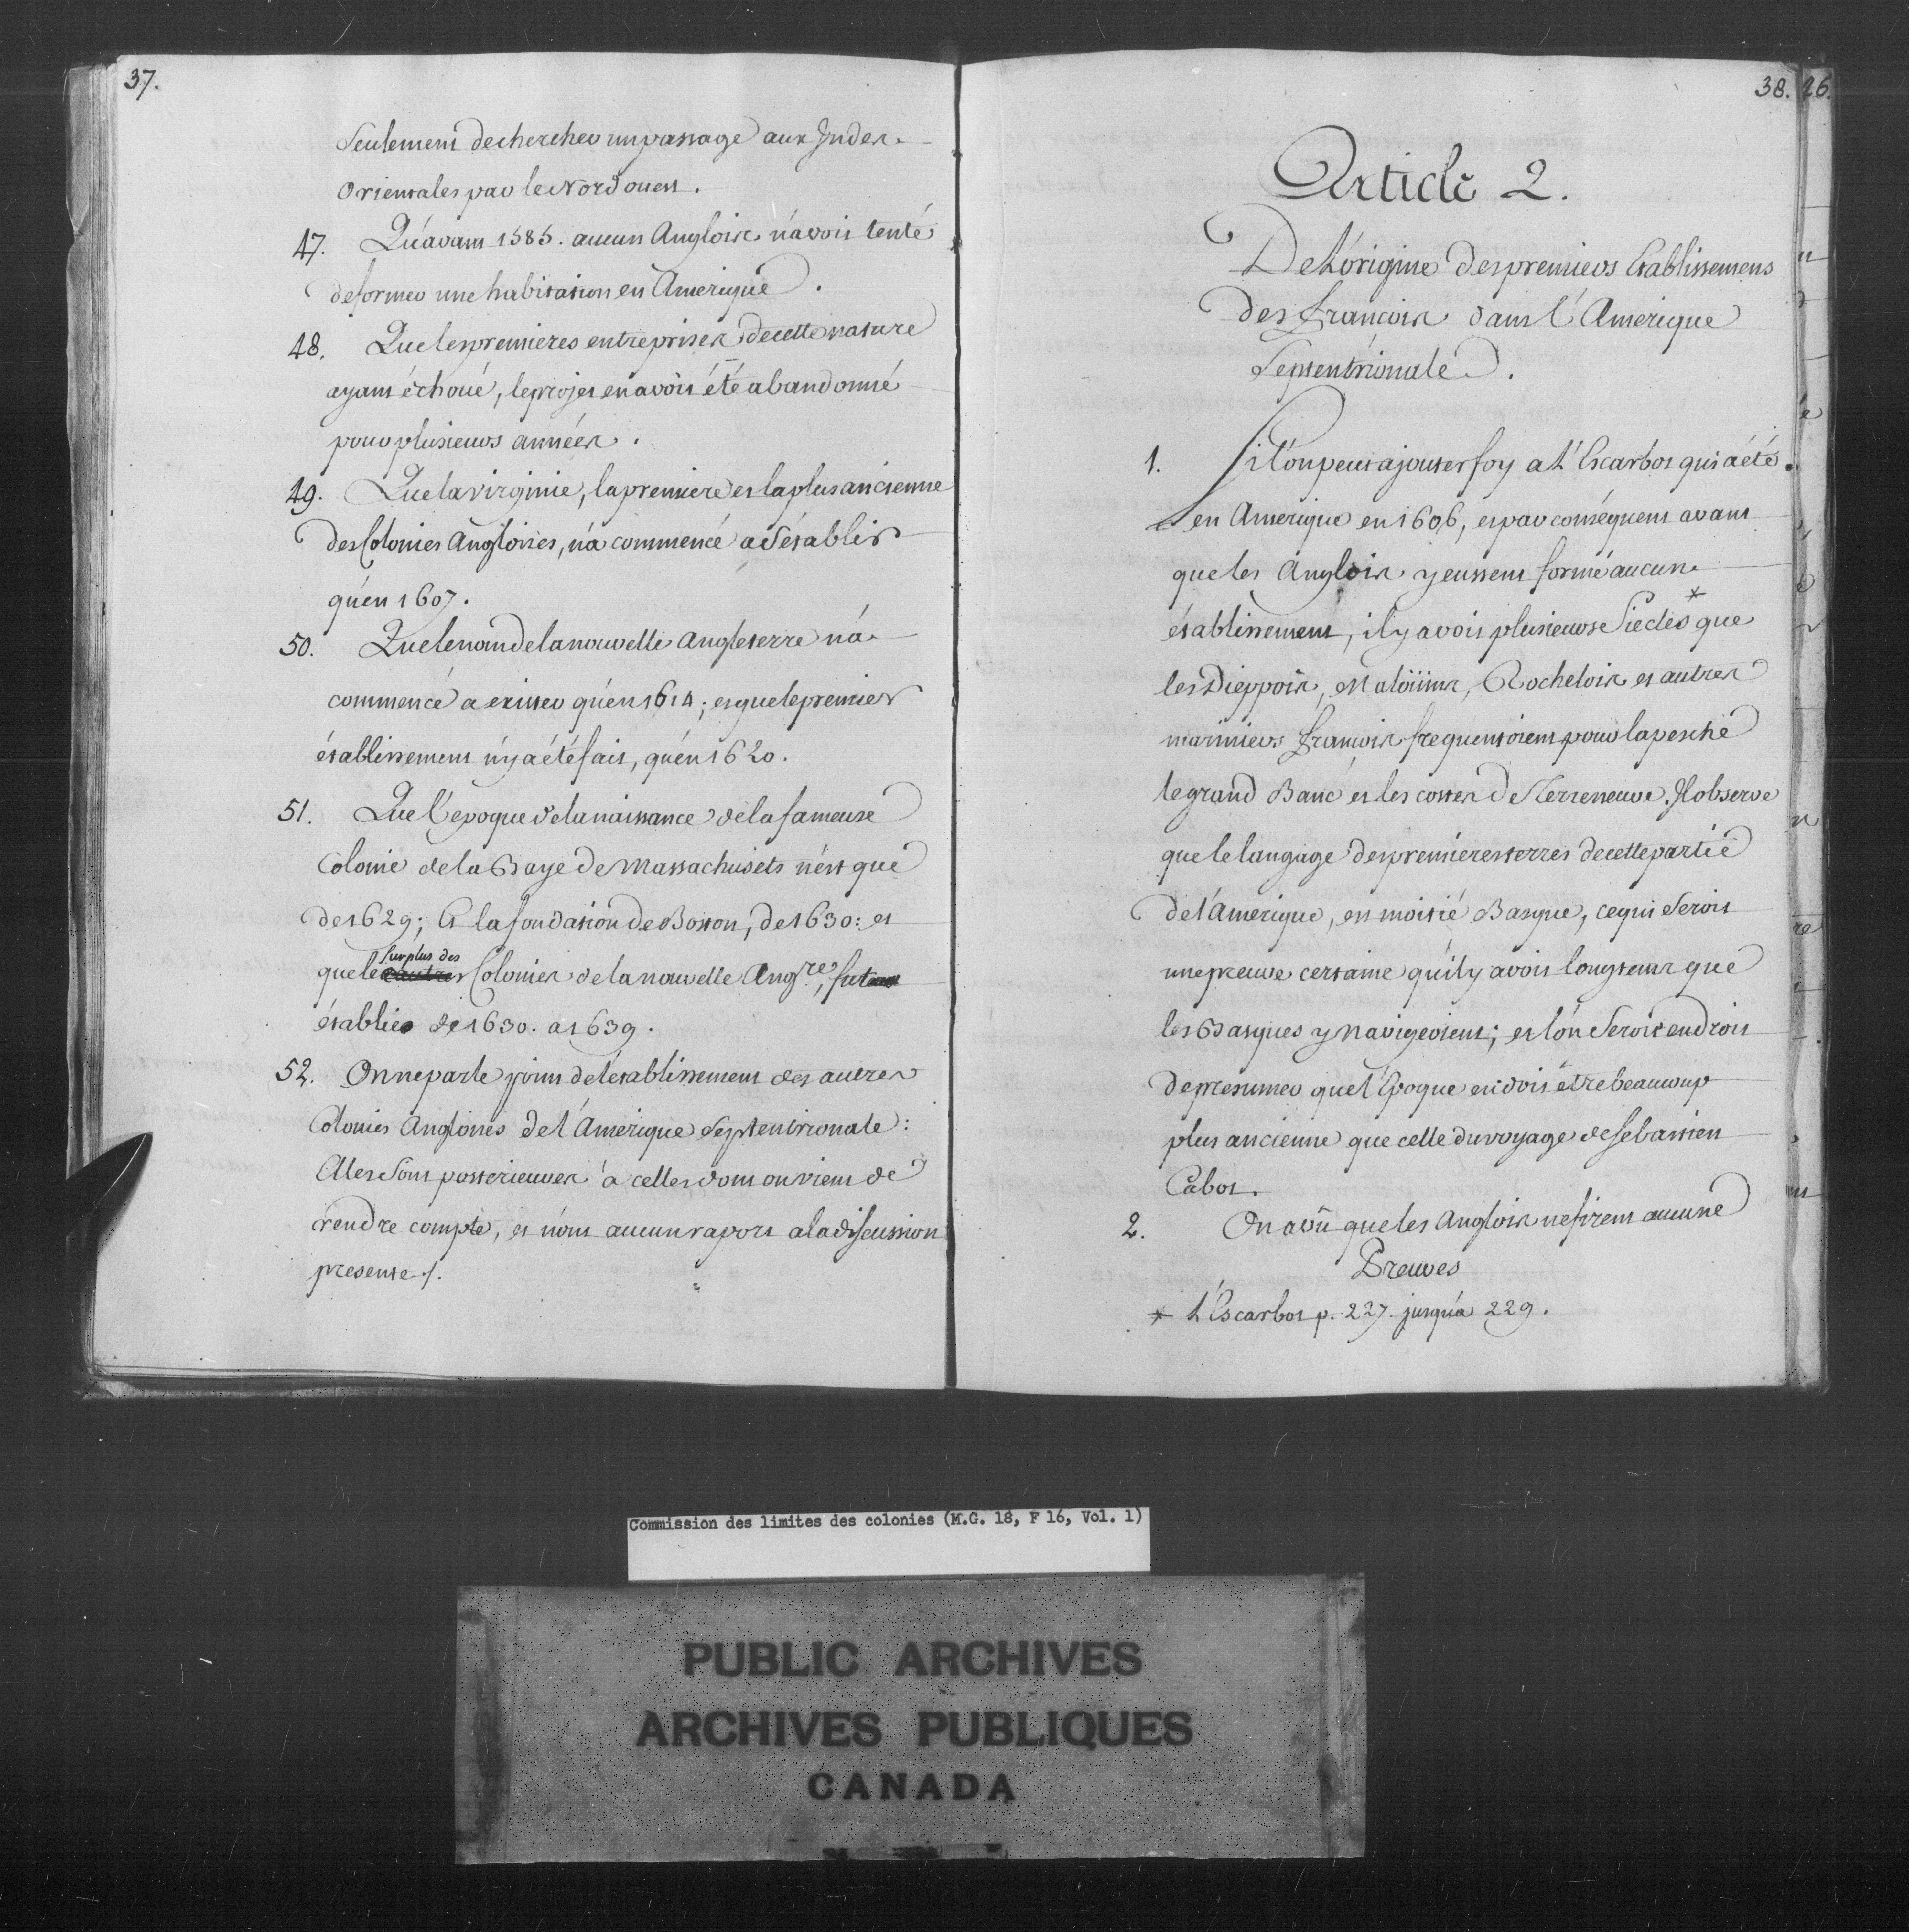 37.
Seulement de chercher un passage aux Indes
Orientales par le Nord ouest.
47. Qu'avant 1585. aucun Anglois n'avoit tenté
de former une habitation en Amerique.
48. Que les premieres entreprises de cette nature
ayant échoué, le projet en avoit été abandonné
pour plusieurs années.
49. Que la virginie, la premiere et la plus ancienne
des Colonies Angloises, n'a commencé a s'établir
qu'en 1607.
50. Que le nom de la nouvelle Angleterre n'a
commencé a exister qu'en 1614; et que le premier
établissement n'y a été fait, qu'en 1620.
51. Que l'epoque de la naissance de la fameuse
Colonie de la Baye de Massachusets n'est que
de 1629; Et la fondation de Boston, de 1630: et
surplus des
que le Colonies de la nouvelle Ang.re, fut
établie de 1630. a 1639.
52. On ne parle point de l'établissement des autres
Colonies Angloises de l'Amérique Septentrionale:
Elles sont posterieures à celles dont on vient de
rendre compte, et n'ont aucun raport a la discussion
presente ./.
38. 26.
Article 2.
De L'origine des premiers Etablissemens
des françois dans l'Amerique
Septentrionale.
1. Si l'on peut ajouter foy a L'Escarbot qui a été
en Amerique en 1606, et par conséquent avant
que les Anglois y eussent formé aucun
établissement, il y avoit plusieurs Siecles * que
les Dieppois, Maloüins, Rochelois et autres
mariniers françois frequentoient pour la pesche
le grand Banc et les costes de Terreneuve. Il observe
que le langage des premieres terres de cette partie
de l'Amerique, est moitié Basque, ce qui seroit
une preuve certaine qu'il y avoit longtems que
les Basques y navigeoient; et l'on seroit en droit
de presumer que l'Epoque en doit être beaucoup
plus ancienne que celle du voyage de Sebastien
Cabot.
2. On a vû que les Anglois ne firent aucune
Preuves
* L'Escarbot p. 227. jusqu'a 229.
Commission des limites des colonies (M.G. 18, F 16, Vol. 1)
PUBLIC ARCHIVES
ARCHIVES PUBLIQUES
CANADA